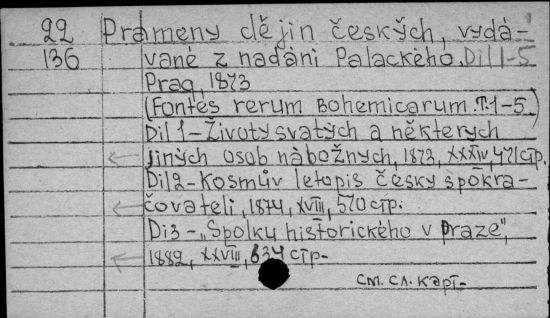 22 Prameny dějin českých, vydá-
136 vané z nadáni Palackého. Díl 1-5
Prag, 1873
(Fontes rerum Bohemicarum. T.1-5.)
Díl 1-Životy svatých a některych
jiných osob nábožných, 1873, XXXIV, 471 стр.
Díl 2-Kosmův letopis česky s pokra-
čovateli, 1874, XVIII, 570 стр.
Di 3-„Spolku historického v Praze",
1882, XXVIII, 634 стр-
см. сл. карт-